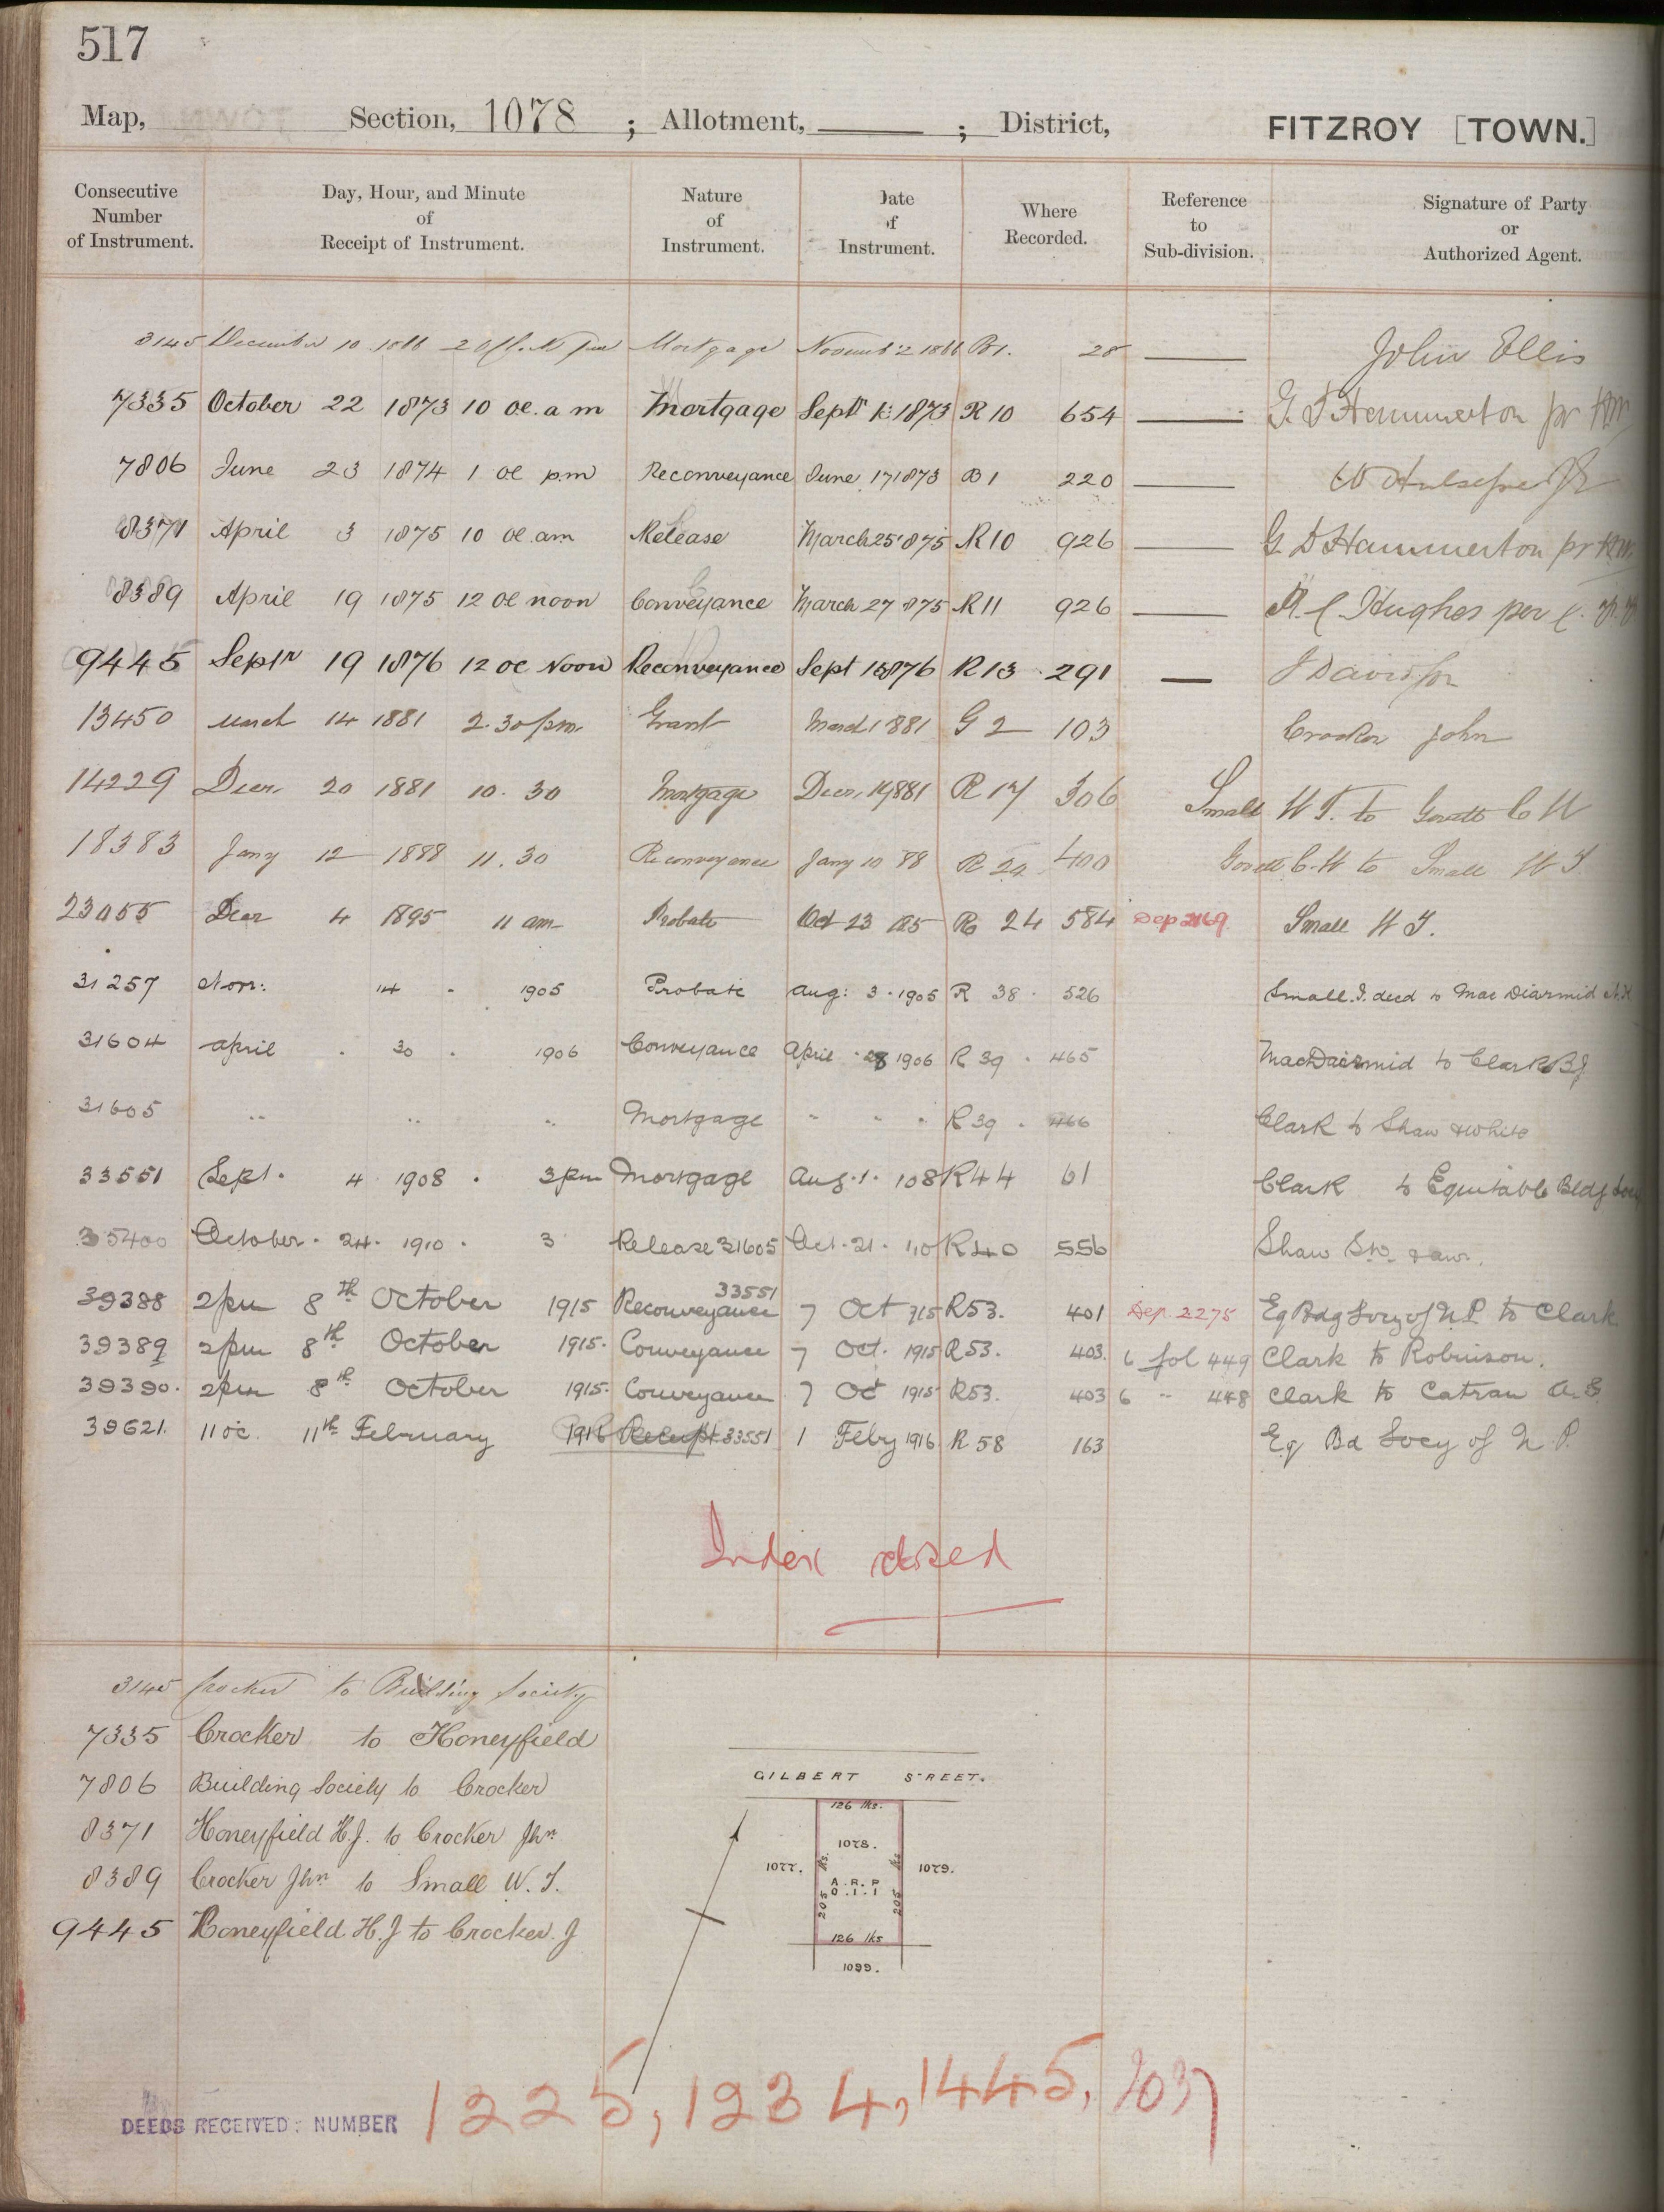 517
Map, Section, 1078 ; Allotment, ; District, FITZROY [TOWN.]
Consecutive Number of Instrument. Day, Hour, and Minute of Receipt of Instrument. Nature of Instrument. Date of Instrument. Where Recorded. Reference to Sub-division. Signature of Party or Authorized Agent.
3145 December 10 Mortgage B1. 28 John Ellis
7335 October 22 1873 10 oc. a m Mortgage Septr 1873 R 10 654 Hammerton pr
7806 June 23 1874 1 oc p.m Reconveyance June 17 1873 B 1 220
8371 April 3 1875 10 oc. am Release March 25 1875 R 10 926 Hammerton pr
8389 April 19 1875 12 oc noon Conveyance March 27 1875 R 11 926 Hughes per
9445 Septr 19 1876 12 oc Noon Reconveyance Sept 1876 R 13 291
13450 March 14 1881 2.30 pm. Grant March 1 1881 G 2 103 Crocker John
14229 Decr. 20 1881 10.30 Mortgage Decr. 1881 R 17 306 Small W T. to Govett C W
18383 Jany 12 1888 11.30 Reconveyance Jany 10 88 R 400 Govett C. W to Small W T.
23055 Decr 4 1895 11 am Probate Oct 23 R 24 584 Dep 2169 Small W T.
31257 Nov: 14 - 1905 Probate Aug: 3 - 1905 R 38 - 526 Small. T. decd to Mac Diarmid
31604 April - 30 - 1906 Conveyance April - 28 1906 R 39 - 465 MacDairmid to Clark B J
31605 " " " Mortgage " " " R 39 - 466 Clark to Shaw & White
33551 Sept. 4 1908 . 3 pm Mortgage Aug. 1. 108 R 44 61 Clark to Equitable Bldg Socy
35400 October . 24 . 1910 . 3 Release 31605 Oct. 21. 110 R 40 556 Shaw
33551
39388 2 pm 8th October 1915 Reconveyance 7 Oct 1915 R53. 401 Dep. 2275 Eq Bdg Socy of N.P. to Clark
39389 2 pm 8th October 1915. Conveyance 7 Oct. 1915 R53. 403. 6 fol 449 Clark to Robinson.
39390. 2 pm 8th October 1915. Conveyance 7 Oct 1915 R53. 403 6 " 448 Clark to Catran A. E
39621. 11 oc. 11th February 1916 Receipt 33551 1 Feby 1916 R. 58 163 Eq Bd Socy of N P.
Index closed
3145 Crocker to Building Society
7335 Crocker to Honeyfield
7806 Building Society to Crocker
8371 Honeyfield H.J. to Crocker Jhn
8389 Crocker Jhn to Small W. T.
9445 Honeyfield. H. J to Crocker. J
GILBERT STREET.
126 lks.
1078.
1077. 1079.
A. R. P
0. 1. 1
205 lks. 205 lks
126 lks
1099.
DEEDS RECEIVED: NUMBER 1225, 1234, 1445, 2037